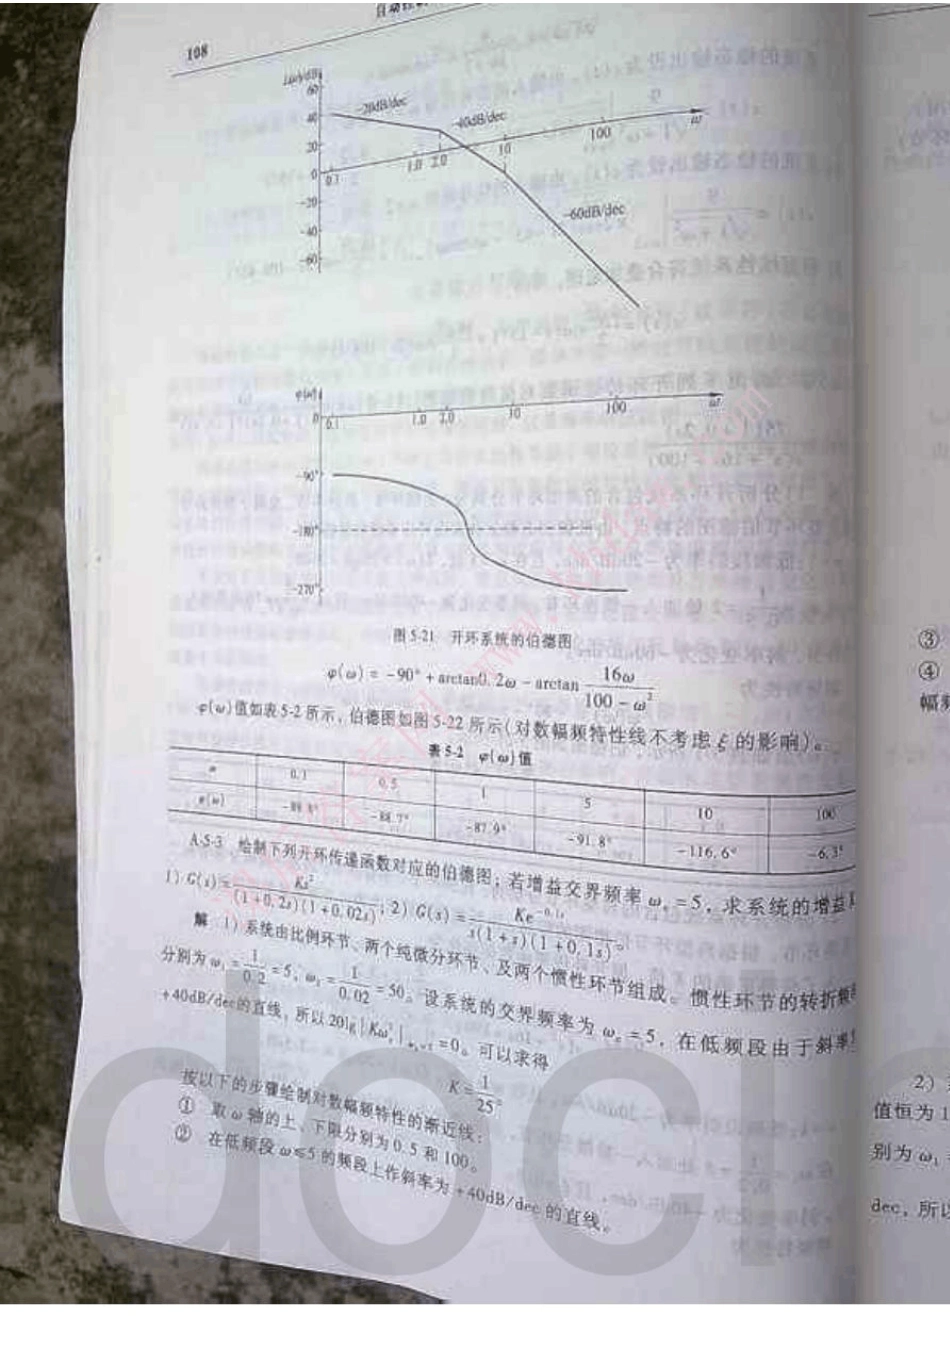 108
60
40
20
0
-20
-40
-60
-20dB/dec
-40dB/dec
-60dB/dec
0.1 1.0 2.0 10 100 ω
0
0.1 1.0 2.0 10 100 ω
-90°
-180°
-270°
图 5-21 开环系统的伯德图
φ(ω) = -90° + arctan0.2ω - arctan 16ω / (100 - ω²)
φ(ω)值如表5-2所示，伯德图如图5-22所示(对数幅频特性线不考虑ξ的影响)。
表 5-2 φ(ω)值
ω 0.1 0.5 1 5 10 100
φ(ω) -88.7° -87.9° -91.8° -116.6° -6.3°
A-5-3 绘制下列开环传递函数对应的伯德图；若增益交界频率 ω꜀=5，求系统的增益
1) G(s)= Ks² / (1+0.2s)(1+0.02s)；2) G(s)= Ke^{-0.1s} / s(1+s)(1+0.1s)。
解 1) 系统由比例环节、两个纯微分环节、及两个惯性环节组成。惯性环节的转折频
分别为 ω₁= 1/0.2 =5，ω₂= 1/0.02 =50。设系统的交界频率为 ω꜀=5，在低频段由于斜率
+40dB/dec的直线，所以 20lg|Kω²|=0。可以求得
K= 1/25。
按以下的步骤绘制对数幅频特性的渐近线：
① 取 ω 轴的上、下限分别为 0.5 和 100。
② 在低频段 ω≤5 的频段上作斜率为 +40dB/dec 的直线。
③
④
幅频
2)
值恒为 1
别为 ω₁
dec，所以